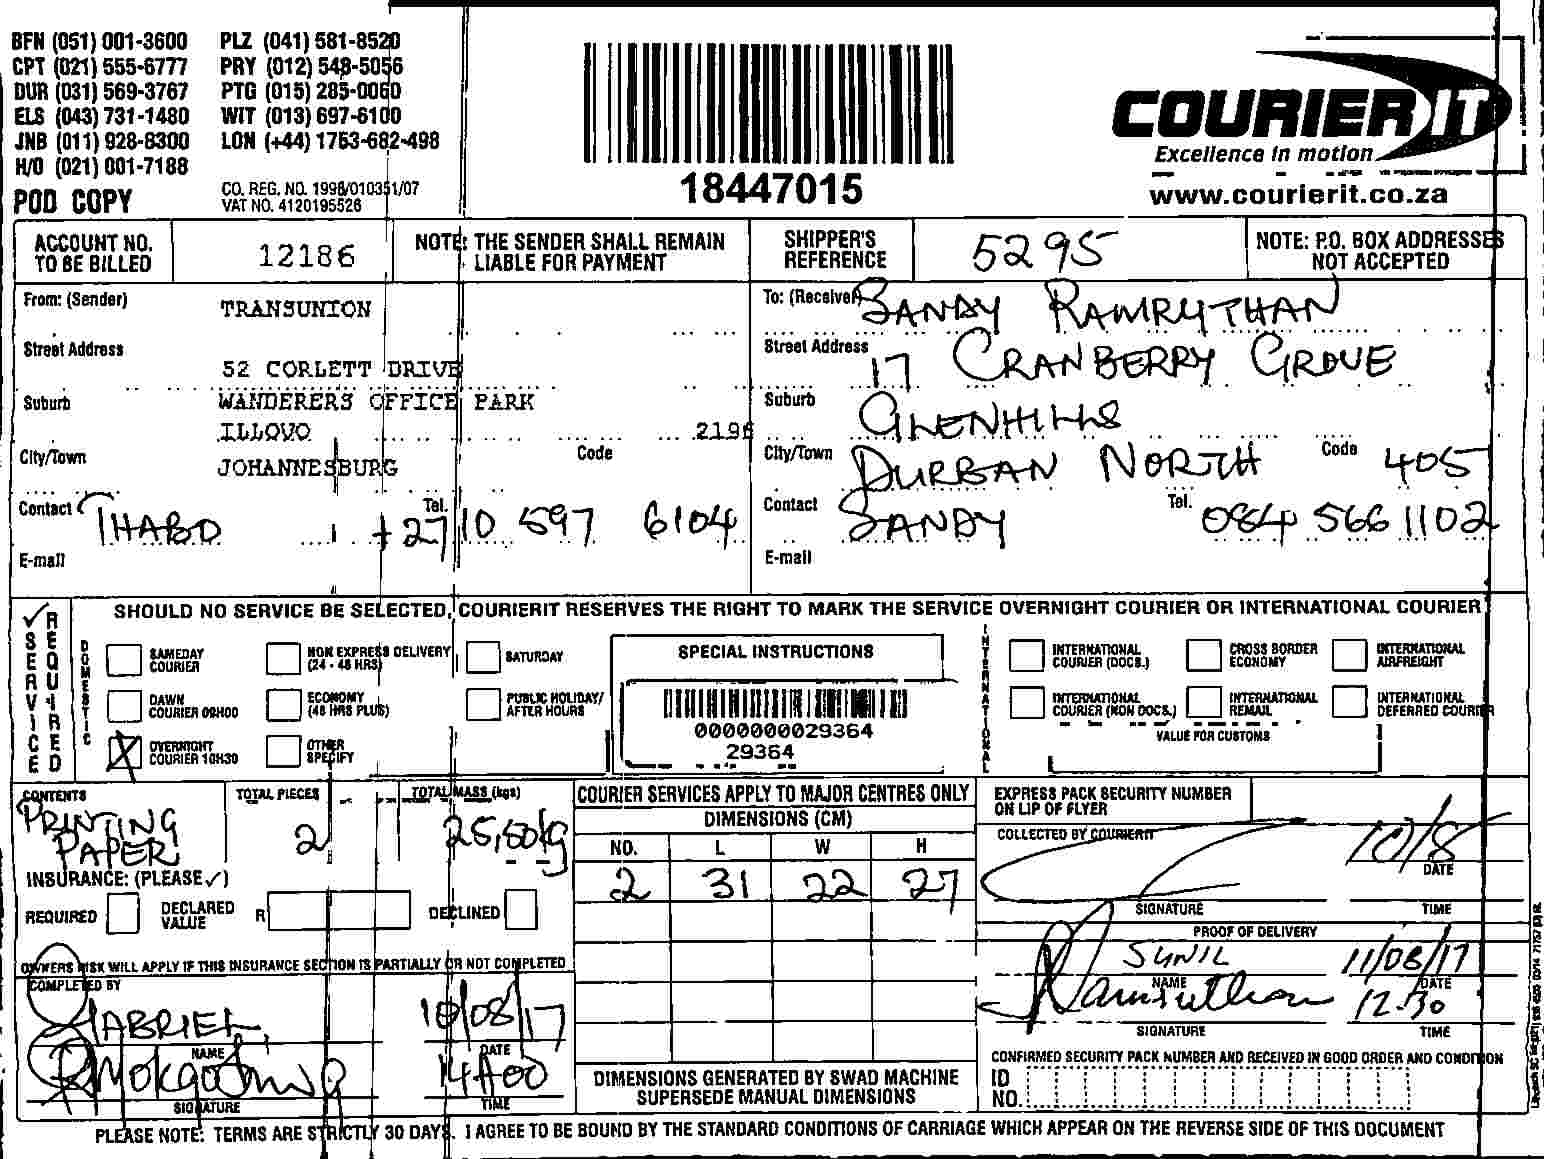 BFN (051) 001-3600 PLZ (041) 581-8520
CPT (021) 555-6777 PRY (012) 548-5056
DUR (031) 569-3767 PTG (015) 285-0060
ELS (043) 731-1480 WIT (013) 697-6100
JNB (011) 928-8300 LON (+44) 1753-682-498
H/O (021) 001-7188
POD COPY
CO. REG. NO. 1998/010351/07
VAT NO. 4120195526
18447015
COURIER IT
Excellence in motion
www.courierit.co.za
ACCOUNT NO. TO BE BILLED 12186
NOTE: THE SENDER SHALL REMAIN LIABLE FOR PAYMENT
SHIPPER'S REFERENCE 5295
NOTE: P.O. BOX ADDRESSES NOT ACCEPTED
From: (Sender) TRANSUNION
Street Address
52 CORLETT DRIVE
Suburb WANDERERS OFFICE PARK
ILLOVO 2196
City/Town JOHANNESBURG Code
Contact THABO Tel. +27 10 597 6104
E-mail
To: (Receiver) SANDY RAMRUTHAN
Street Address 17 CRANBERRY GROVE
Suburb GLENHILLS
City/Town DURBAN NORTH Code 405
Contact SANDY Tel. 084 566 1102
E-mail
SERVICE REQUIRED
SHOULD NO SERVICE BE SELECTED, COURIERIT RESERVES THE RIGHT TO MARK THE SERVICE OVERNIGHT COURIER OR INTERNATIONAL COURIER
DOMESTIC
SAMEDAY COURIER
NON EXPRESS DELIVERY (24 - 48 HRS)
SATURDAY
DAWN COURIER 09H00
ECONOMY (48 HRS PLUS)
PUBLIC HOLIDAY/ AFTER HOURS
OVERNIGHT COURIER 10H30
OTHER SPECIFY
SPECIAL INSTRUCTIONS
0000000029364
29364
INTERNATIONAL
INTERNATIONAL COURIER (DOCS.)
CROSS BORDER ECONOMY
INTERNATIONAL AIRFREIGHT
INTERNATIONAL COURIER (NON DOCS.)
INTERNATIONAL REMAIL
INTERNATIONAL DEFERRED COURIER
VALUE FOR CUSTOMS
CONTENTS PRINTING PAPER
TOTAL PIECES 2
TOTAL MASS (kgs) 25,50kg
INSURANCE: (PLEASE ✓)
REQUIRED DECLARED VALUE R DECLINED
OWNERS RISK WILL APPLY IF THIS INSURANCE SECTION IS PARTIALLY OR NOT COMPLETED
COMPLETED BY
GABRIEL 10/08/17
NAME DATE
14H00
SIGNATURE TIME
COURIER SERVICES APPLY TO MAJOR CENTRES ONLY
DIMENSIONS (CM)
NO. L W H
2 31 22 27
DIMENSIONS GENERATED BY SWAD MACHINE
SUPERSEDE MANUAL DIMENSIONS
EXPRESS PACK SECURITY NUMBER ON LIP OF FLYER
COLLECTED BY COURIERIT
10/8
DATE
SIGNATURE TIME
PROOF OF DELIVERY
SUNIL 11/08/17
NAME DATE
12-30
SIGNATURE TIME
CONFIRMED SECURITY PACK NUMBER AND RECEIVED IN GOOD ORDER AND CONDITION
ID NO.
PLEASE NOTE: TERMS ARE STRICTLY 30 DAYS. I AGREE TO BE BOUND BY THE STANDARD CONDITIONS OF CARRIAGE WHICH APPEAR ON THE REVERSE SIDE OF THIS DOCUMENT